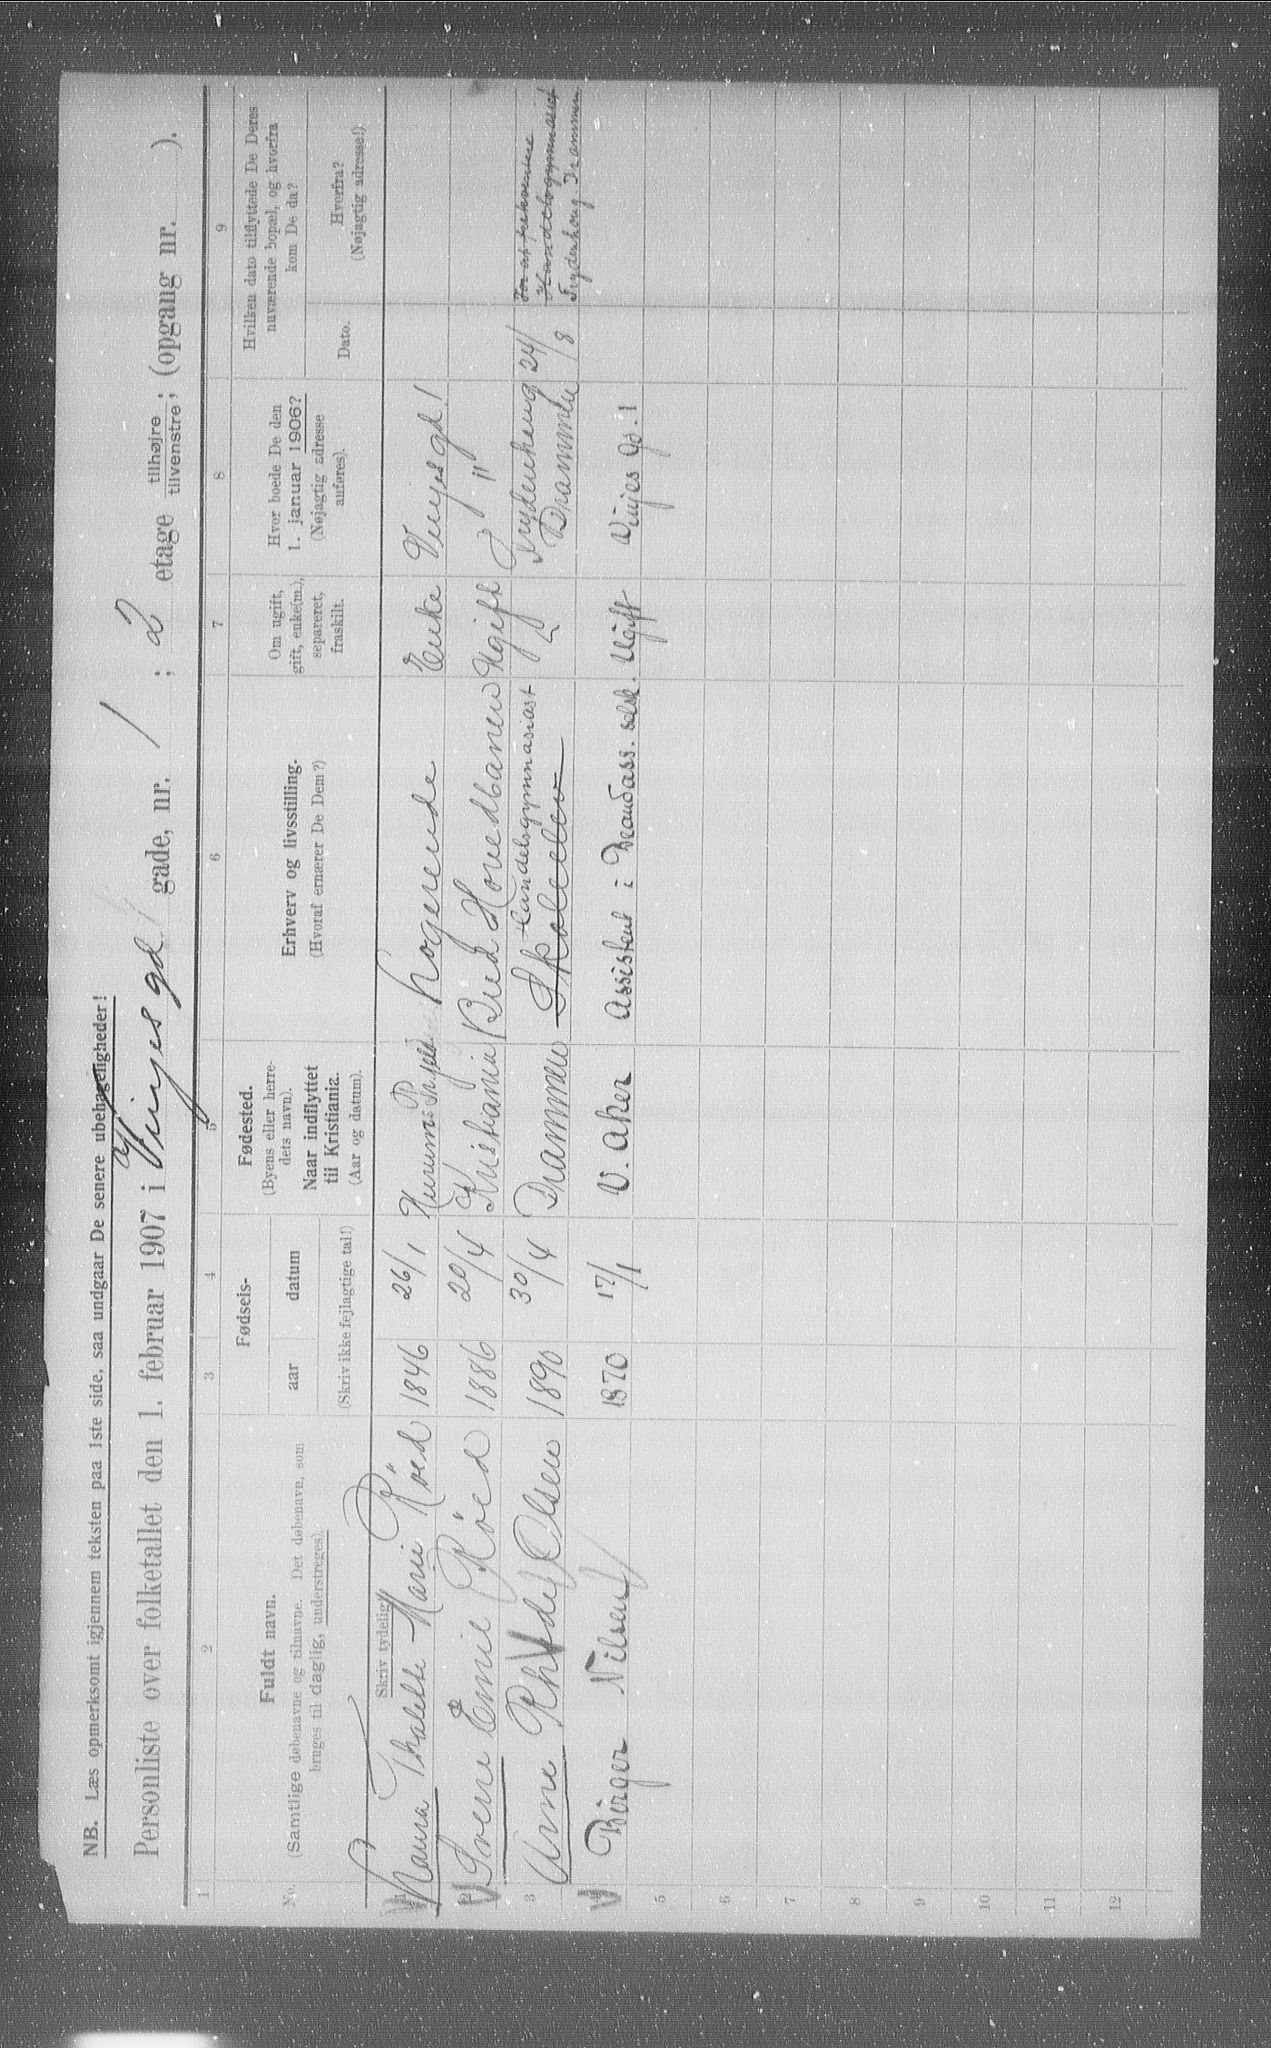 NB. Læs opmerksomt igjennem teksten paa 1ste side, saa undgaar De senere ubehageligheder!
Personliste over folketallet den 1. februar 1907 i Vinjes gd gade, nr. 1 ; 2 etage tilhøjre tilvenstre; (opgang nr. ).
1 2 3 4 5 6 7 8 9
No.
Fuldt navn.
(Samtlige døbenavne og tilnavne. Det døbenavn, som
bruges til daglig, understreges).
Skriv tydelig!
Fødsels-
aar datum
(Skriv ikke fejlagtige tal!)
Fødested.
(Byens eller herre-
dets navn).
Naar indflyttet
til Kristiania.
(Aar og datum).
Erhverv og livsstilling.
(Hvoraf ernærer De Dem?)
Om ugift,
gift, enke(m.),
separeret,
fraskilt.
Hvor boede De den
1. januar 1906?
(Nøjagtig adresse
anføres).
Hvilken dato tilflyttede De Deres
nuværende bopæl, og hvorfra
kom De da?
Dato.
Hvorfra?
(Nøjagtig adresse!)
1 Laura Thalette Marie Röed 1846 26/1 Hurum Logerende Enke Vinjes gd 1
2 Emil Röed 1886 20/4 Kristiania Bud Hovedbanen Ugift "
3 Arne Olsen 1890 30/4 Drammen Handelsgymnasiast Skoleelev Frydenhaug Drammen 24/8 For at frekventere Handelsgymnasiet Frydenhaug. Drammen
4 Birger Nilsen 1870 17/1 V. Aker Assistent i Brandass. selsk. Ugift Vinjes gd. 1
5
6
7
8
9
10
11
12